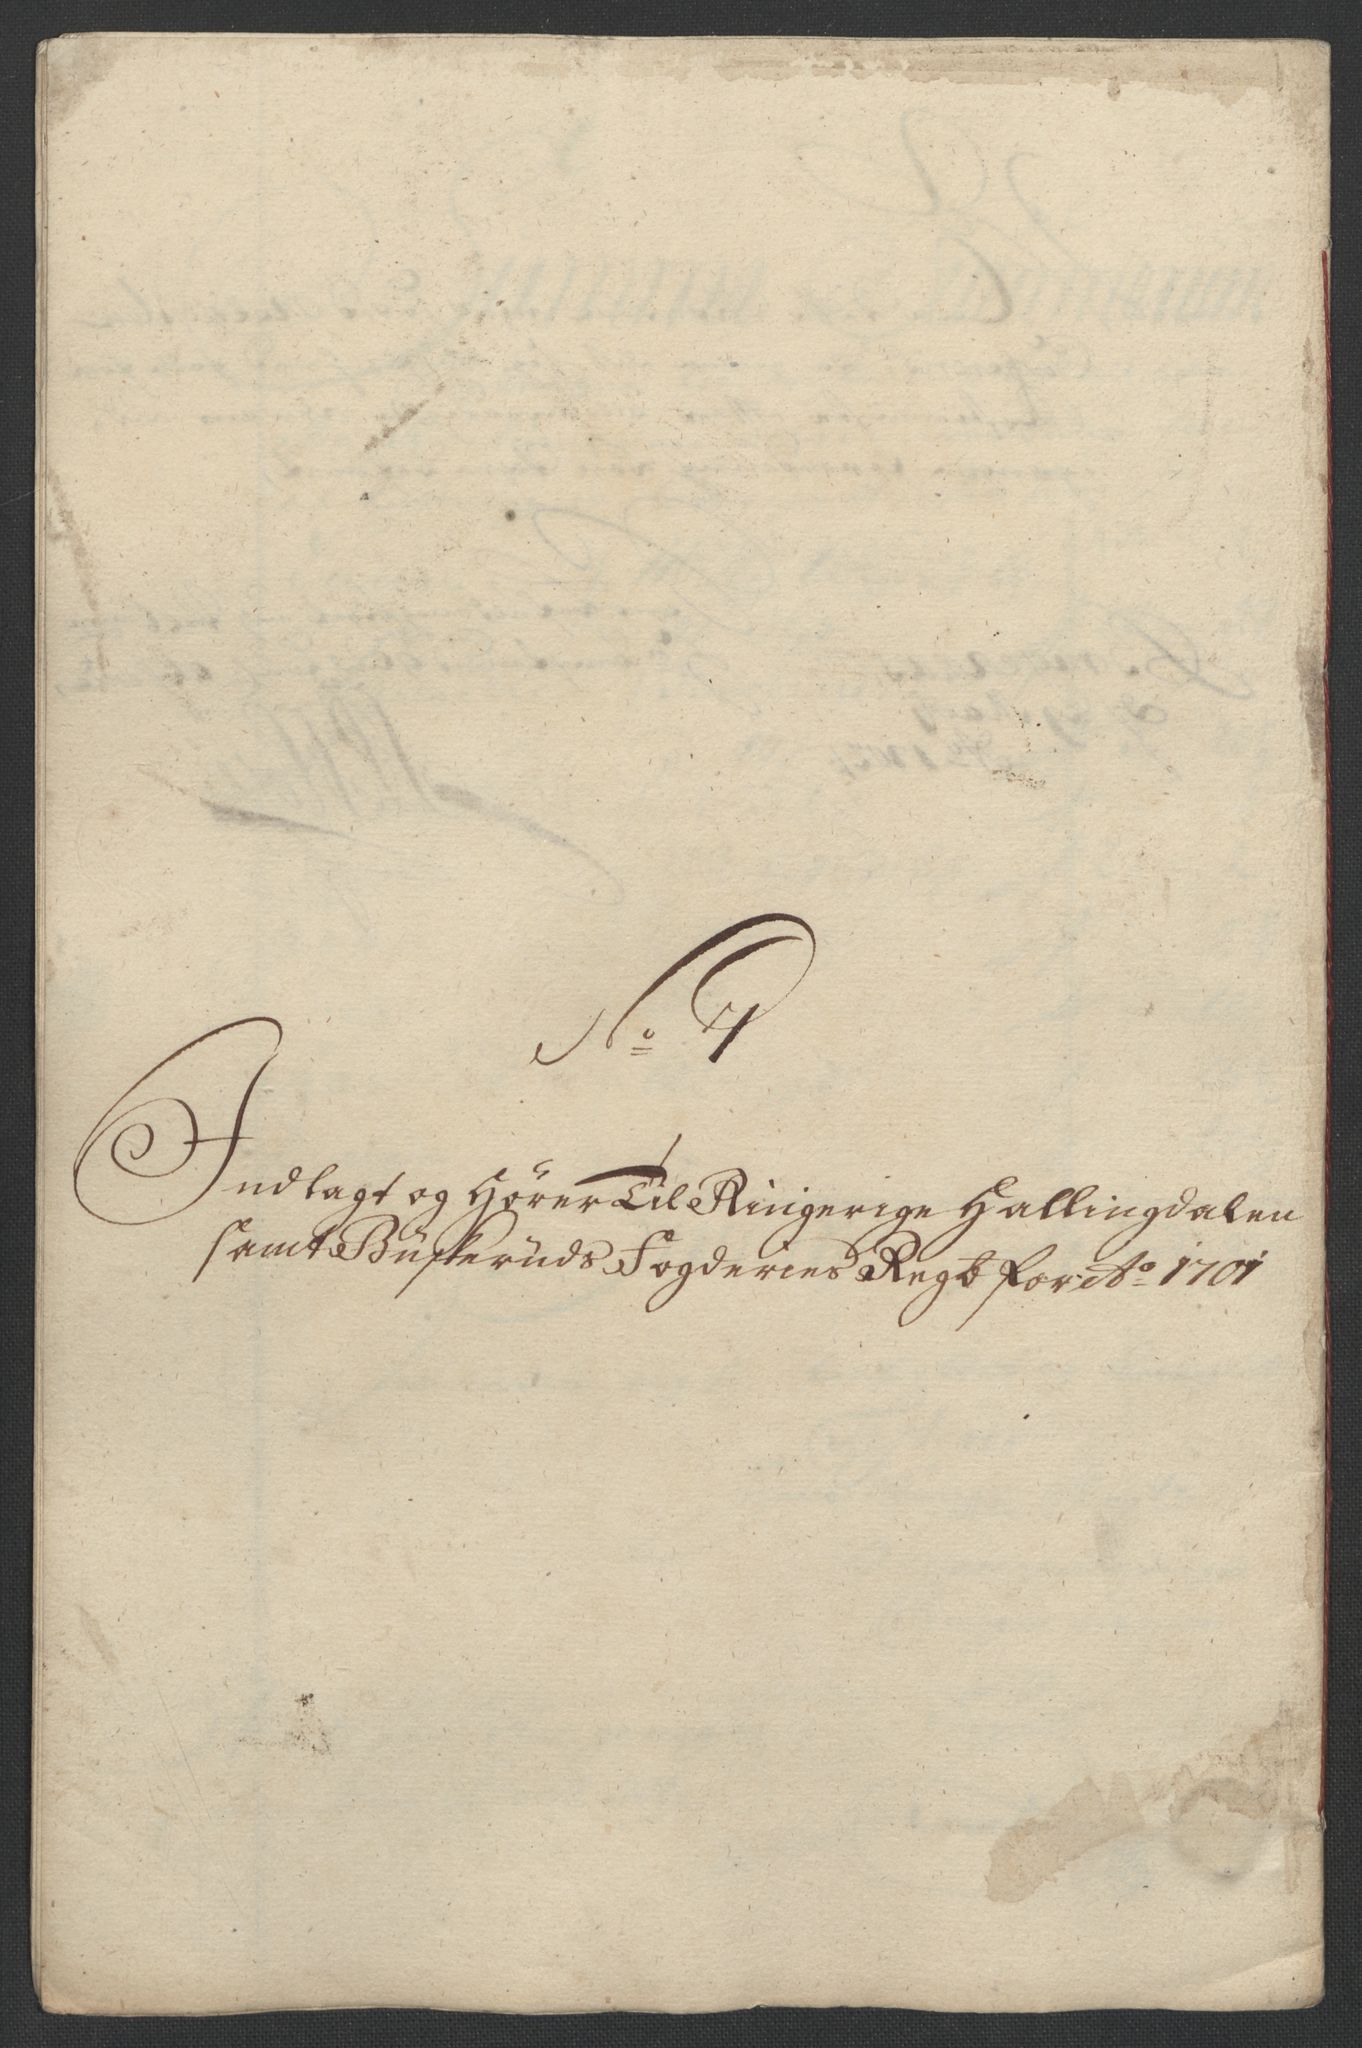 No 7
Indlagt og Hörer Til Ringerige Hallingdalen
samt Büskerüds Fogderies Regb for Ao 1701